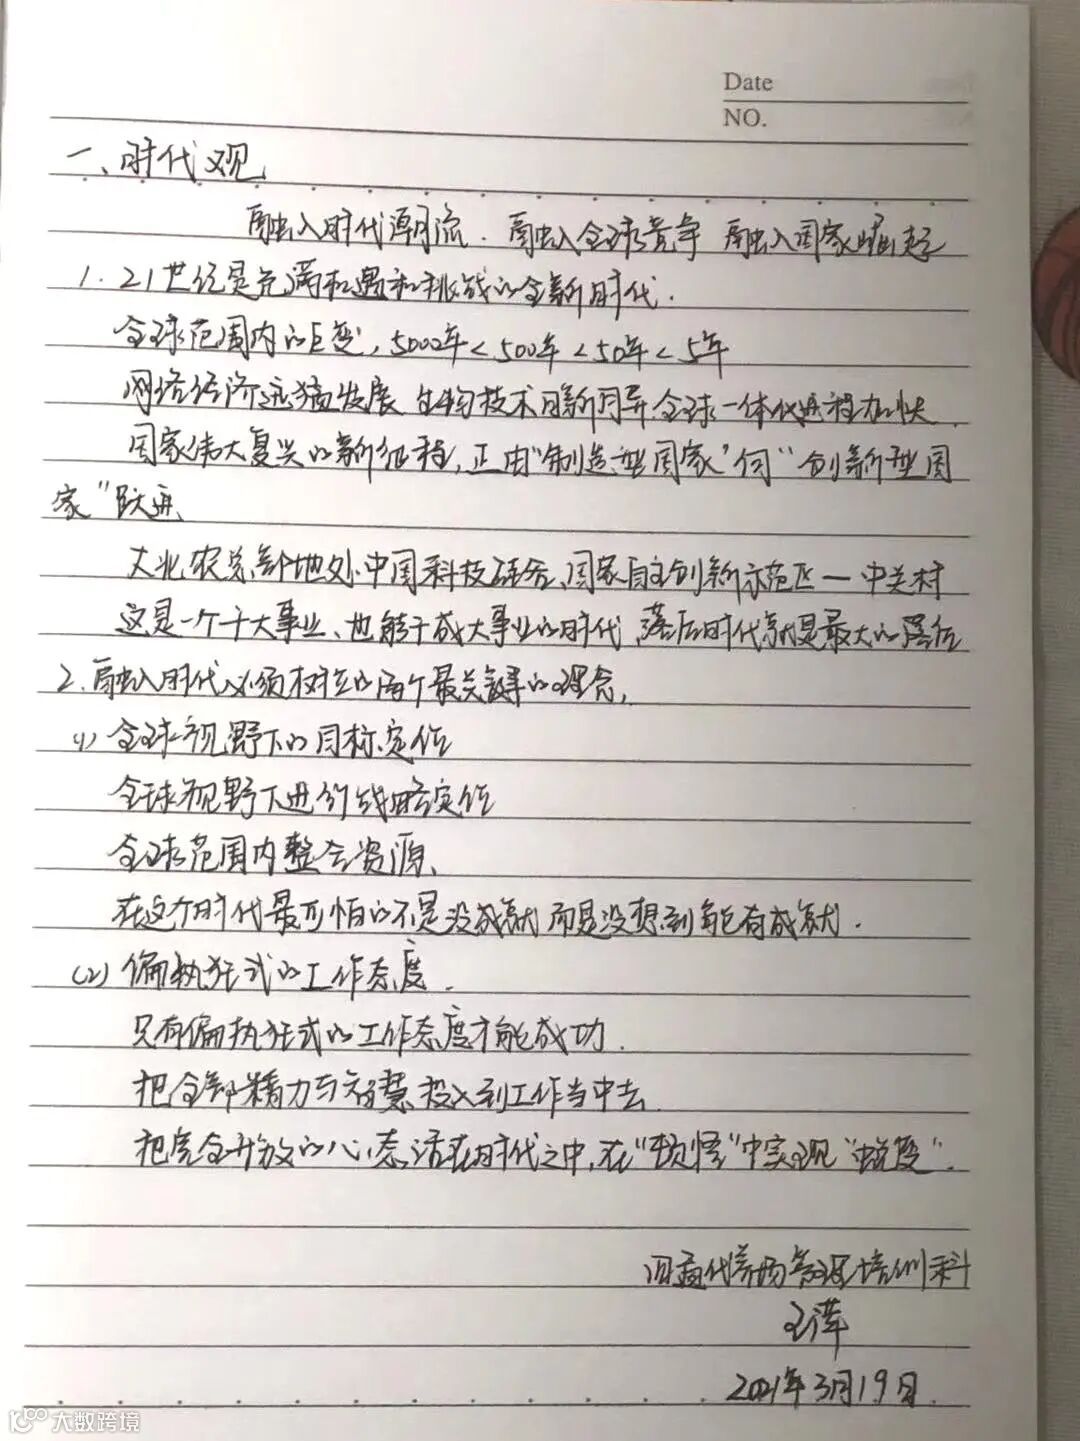 Date
NO.
一、时代观
融入时代潮流、融入全球竞争 融入国家崛起
1. 21世纪是充满机遇和挑战的全新时代.
全球范围内的巨变, 5000年<500年<50年<5年
网络经济迅猛发展 生物技术日新月异 全球一体化进程加快.
国家伟大复兴的新征程, 正由"制造型国家"向"创新型国
家"跃进
大北农总部地处中国科技硅谷、国家自主创新示范区—中关村
这是一个干大事业、也能干成大事业的时代 落后时代就是最大的落伍
2. 融入时代必须树立的两个最关键的理念,
(1) 全球视野下的目标定位
全球视野下进行战略定位
全球范围内整合资源、
在这个时代最可怕的不是没成就 而是没想到能有成就.
(2) 偏执狂式的工作态度.
只有偏执狂式的工作态度才能成功.
把全部精力与智慧投入到工作当中去
把完全开放的心态活在时代之中, 在"顿悟"中实现"蜕变".
代养场管理培训科
王萍
2021年3月19日.
大数跨境